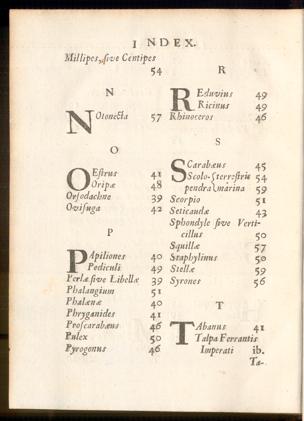 INDEX.
Millipes, sive Centipes
54
N
Notonecta 57
O
Oestrus 41
Oripæ 48
Orsodachne 39
Ovifuga 42
P
Papiliones 40
Pediculi 49
Perlæ sive Libellæ 39
Phalangium 51
Phalænæ 40
Phryganides 41
Proscarabæus 46
Pulex 50
Pyrogonus 46
R
Reduvius 49
Ricinus 49
Rhinoceros 46
S
Scarabæus 45
Scolo- terrestris 54
pendra marina 59
Scorpio 51
Seticaudæ 43
Sphondyle sive Verti-
cillus 50
Squillæ 57
Staphylinus 50
Stellæ 59
Syrones 56
T
Tabanus 41
Talpa Ferrantis
Imperati ib.
Ta-